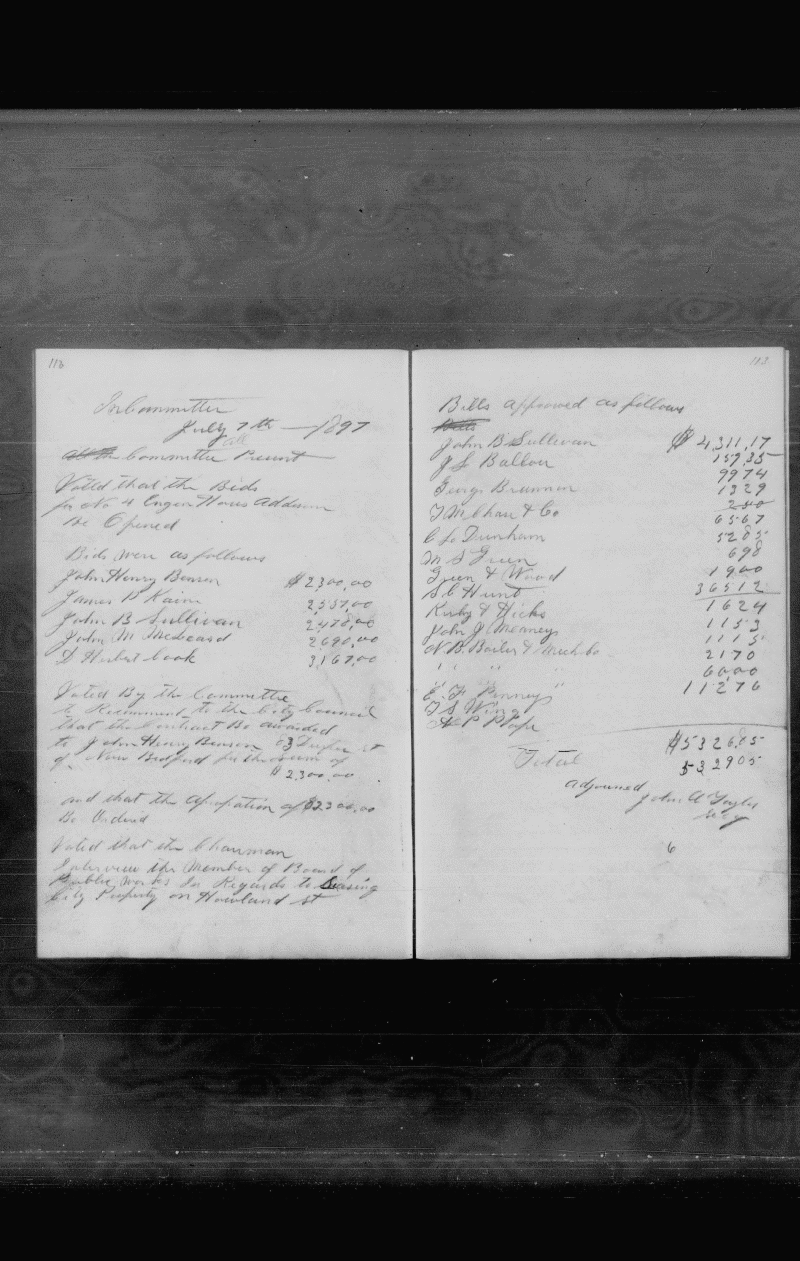 112
In Committee
July 7th — 1897
all
Committee Present
Voted that the Bids
for No 4 Engin House
Be Opened
Bids were as follows
John Henry Benson $2300,00
James D Kain 2,537,00
John B Sullivan 2,478,00
John M 2690,00
D Herbet Cook 3,167,00
Voted By the Committee
to Recommend to the City Council
that the Contract Be awarded
to John Henry Benson 63 st
of New Bedford for the sum of
$2,300,00
and that the of $2300,00
Be Ordered
Voted that the Chairman
Interview the Member of Board of
Public Works In Regards to Leasing
City Property on Howland st
113
Bills approved as follows
Bills
John B Sullivan $4,311,17
J L Ballou 159,35
9974
George Brunnen 1329
T M Chase & Co
6567
C S Dunham 5285
M S Green 698
Green & Wood 1900
S C Hunt 36512
Kirby & Hicks 1624
John J Meaney 1153
N B Boiler & Mch Co 1115
" " " " 2170
E. F. Penney 6000
T S Wing 11276
A P Pope
Total $532685
532905
adjourned
John A Taylor
Secy
6